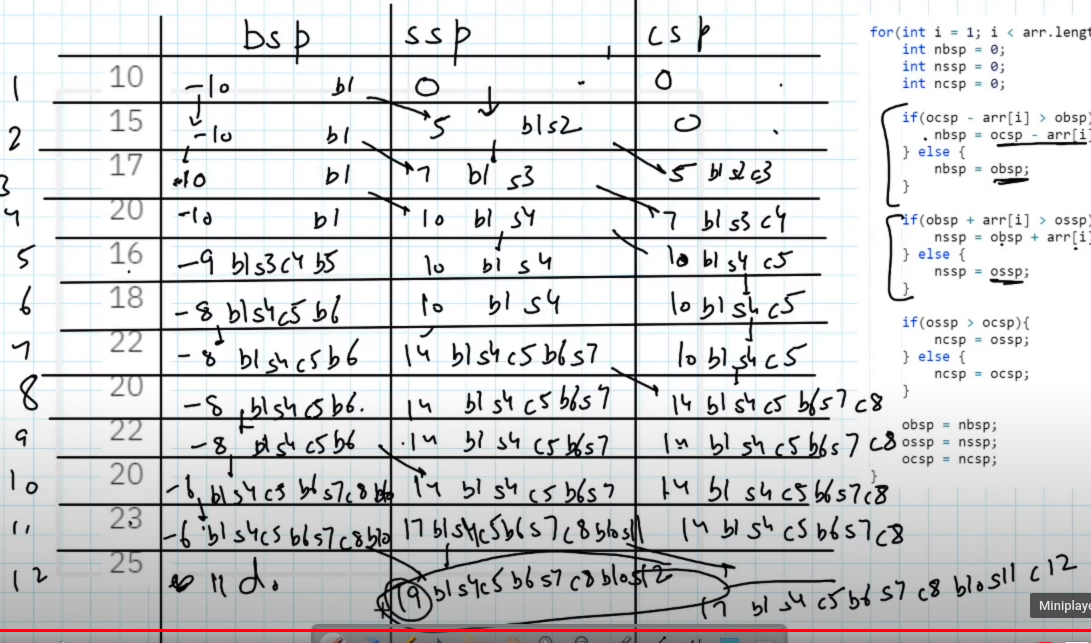 bsp ssp csp
1 10 -10 b1 0 0
2 15 -10 b1 5 b1s2 0
3 17 -10 b1 7 b1 s3 5 b1s2c3
4 20 -10 b1 10 b1 s4 7 b1s3 c4
5 16 -9 b1s3c4 b5 10 b1 s4 10 b1 s4 c5
6 18 -8 b1s4c5 b6 10 b1 s4 10 b1 s4 c5
7 22 -8 b1 s4 c5 b6 14 b1s4 c5 b6s7 10 b1 s4 c5
8 20 -8 b1s4 c5 b6. 14 b1 s4 c5 b6s7 14 b1 s4 c5 b6s7 c8
9 22 -8 b1 s4 c5 b6 14 b1 s4 c5 b6s7 14 b1 s4 c5 b6s7 c8
10 20 -6 b1s4c5 b6s7c8 b10 14 b1 s4 c5 b6s7 14 b1 s4 c5 b6s7c8
11 23 -6 b1 s4c5 b6s7c8b10 17 b1s4c5b6s7c8b10s11 14 b1 s4 c5 b6s7 c8
12 25 11 d. 19 b1s4c5 b6s7 c8 b10s12 17 b1 s4 c5 b6 s7 c8 b10 s11 c12
for(int i = 1; i < arr.lengt
int nbsp = 0;
int nssp = 0;
int ncsp = 0;
if(ocsp - arr[i] > obsp)
nbsp = ocsp - arr[i]
} else {
nbsp = obsp;
}
if(obsp + arr[i] > ossp)
nssp = obsp + arr[i]
} else {
nssp = ossp;
}
if(ossp > ocsp){
ncsp = ossp;
} else {
ncsp = ocsp;
}
obsp = nbsp;
ossp = nssp;
ocsp = ncsp;
}
Miniplaye